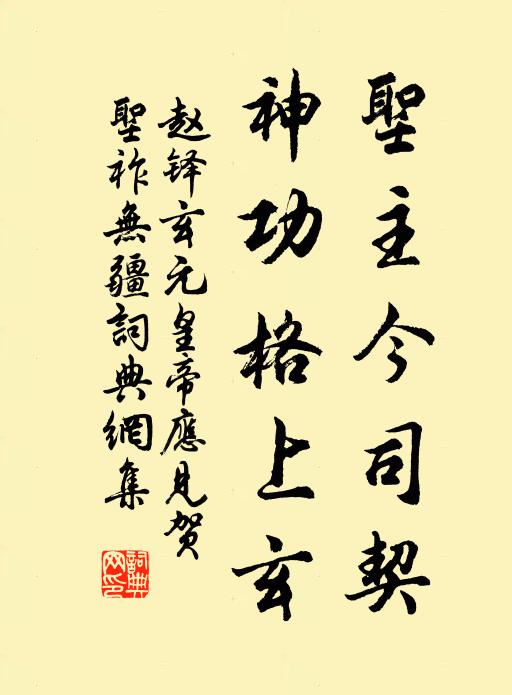 聖主今司契
神功格上玄
赵铎玄元皇帝應見賀
聖祚無疆詞典網集
詞典網印